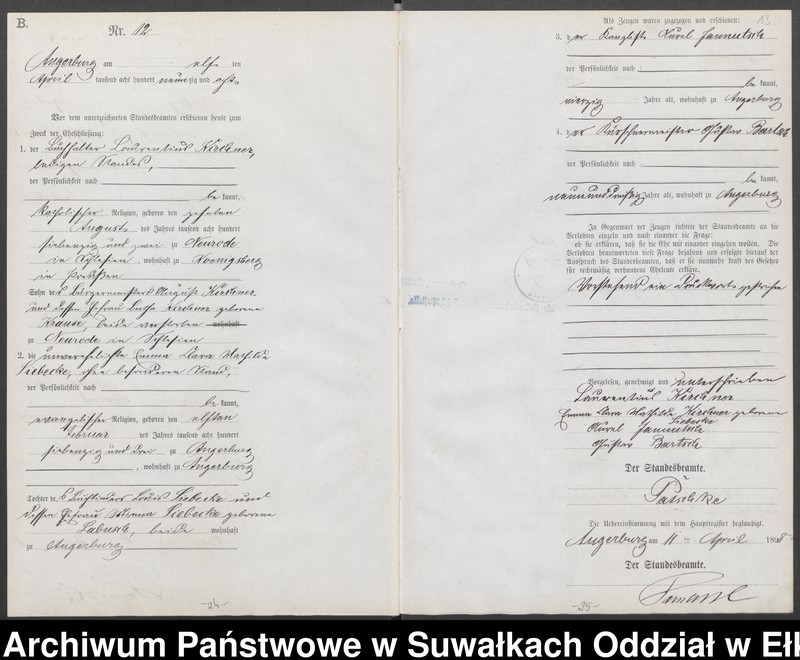 B.
Nr. 12
Angerburg am elften
April tausend acht hundert neunzig und acht
Vor dem unterzeichneten Standesbeamten erschienen heute zum
Zweck der Eheschließung:
1. der Buchhalter Laurentius Kirchner,
ledigen Standes,
der Persönlichkeit nach
be kannt,
katholischer Religion, geboren den zehnten
August des Jahres tausend acht hundert
siebenzig und zwei zu Neurode
in Schlesien, wohnhaft zu Koenigsberg
in Preußen
Sohn des Bürgermeisters August Kirchner
und dessen Ehefrau Kirchner geborene
Krause, beide verstorben wohnhaft
zu Neurode in Schlesien
2. die unverehelichte Emma Clara Mathilde
Siebecke, ohne besonderen Stand,
der Persönlichkeit nach
be kannt,
evangelischer Religion, geboren den elften
Februar des Jahres tausend acht hundert
siebenzig und drei zu Angerburg
, wohnhaft zu Angerburg
Tochter des Louis Siebecke und
dessen Ehefrau Siebecke geborene
Labusch, beide wohnhaft
zu Angerburg
-24-
13
Als Zeugen waren zugezogen und erschienen:
3. der Kanzlist Aurel Jannutsch
der Persönlichkeit nach
be kannt,
vierzig Jahre alt, wohnhaft zu Angerburg
4. der Kürschnermeister Gustav Bartsch
der Persönlichkeit nach
be kannt,
neununddreißig Jahre alt, wohnhaft zu Angerburg
In Gegenwart der Zeugen richtete der Standesbeamte an die
Verlobten einzeln und nach einander die Frage:
ob sie erklären, daß sie die Ehe mit einander eingehen wollen. Die
Verlobten beantworteten diese Frage bejahend und erfolgte hierauf der
Ausspruch des Standesbeamten, daß er sie nunmehr kraft des Gesetzes
für rechtmäßig verbundene Eheleute erkläre.
Vorstehend ein Druckwort gestrichen
Vorgelesen, genehmigt und unterschrieben
Laurentius Kirchner
Emma Clara Mathilde Kirchner geborene
Siebecke
Aurel Jannutsch
Gustav Bartsch
Der Standesbeamte.
Die Uebereinstimmung mit dem Hauptregister beglaubigt.
Angerburg am 11 April 1898
Der Standesbeamte.
-25-
Archiwum Państwowe w Suwałkach Oddział w Ełk